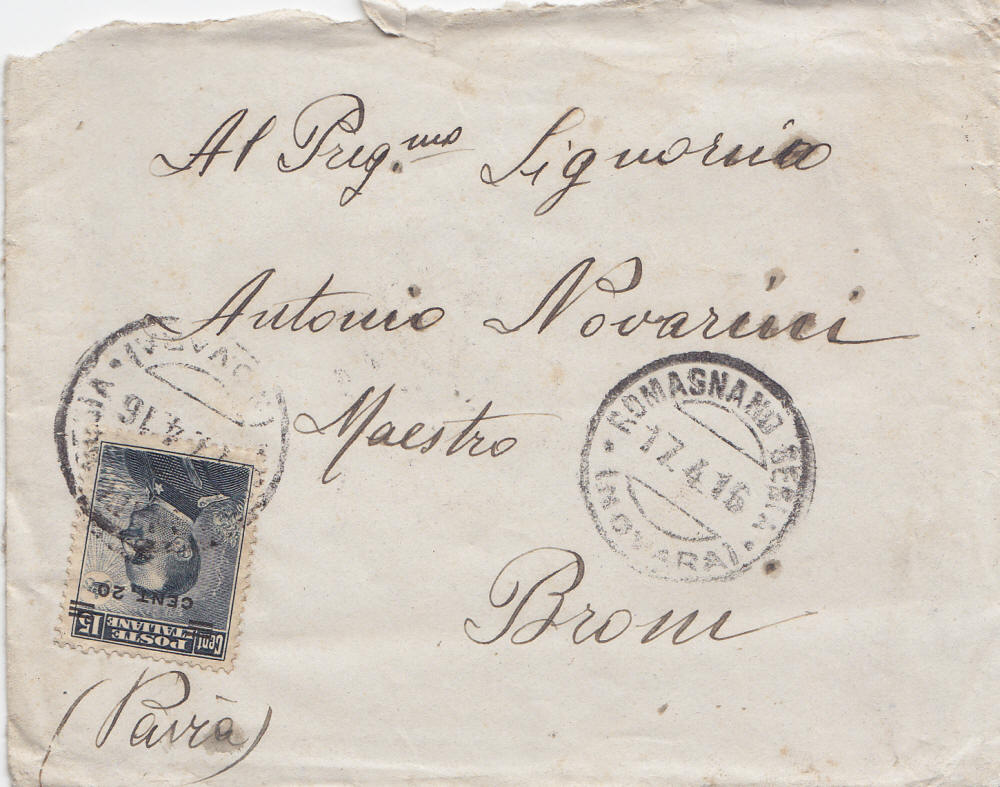 Al Preg.mo Signorino
Antonio Novarini
Maestro
Broni
(Pavia)
ROMAGNANO SESIA
17.4.16
(NOVARA)
4.16
CENT. 20
Cent. 15
POSTE
ITALIANE